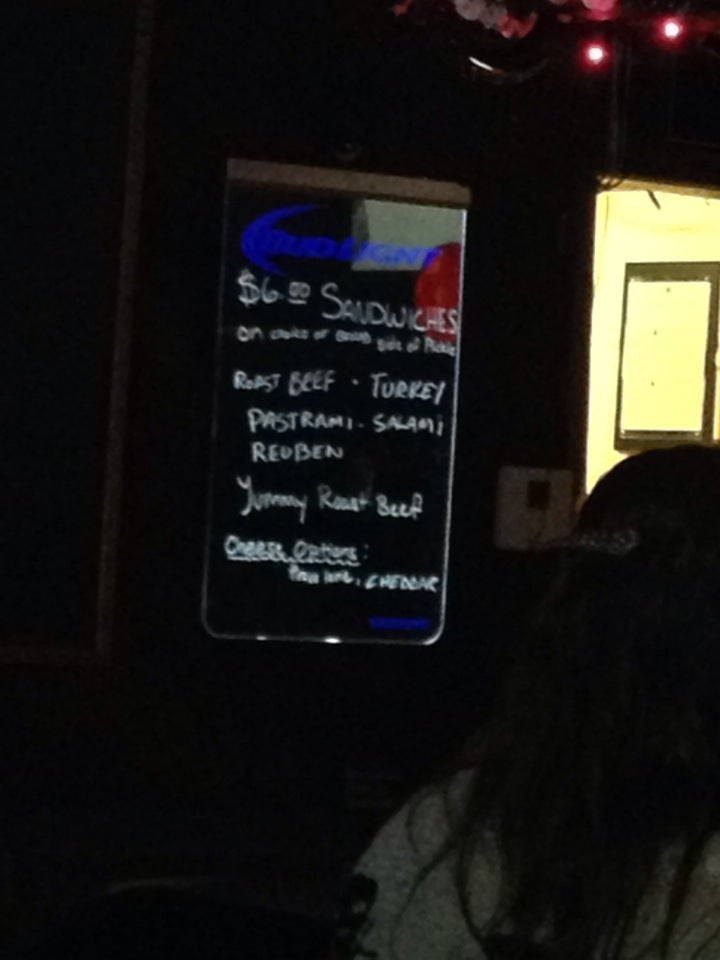 BUD LIGHT
$6.00 SANDWICHES
on choice of bread side of Pickle
ROAST BEEF · TURKEY
PASTRAMI - SALAMI
REUBEN
Yummy Roast Beef
Cheese Options:
Provolone, CHEDDAR